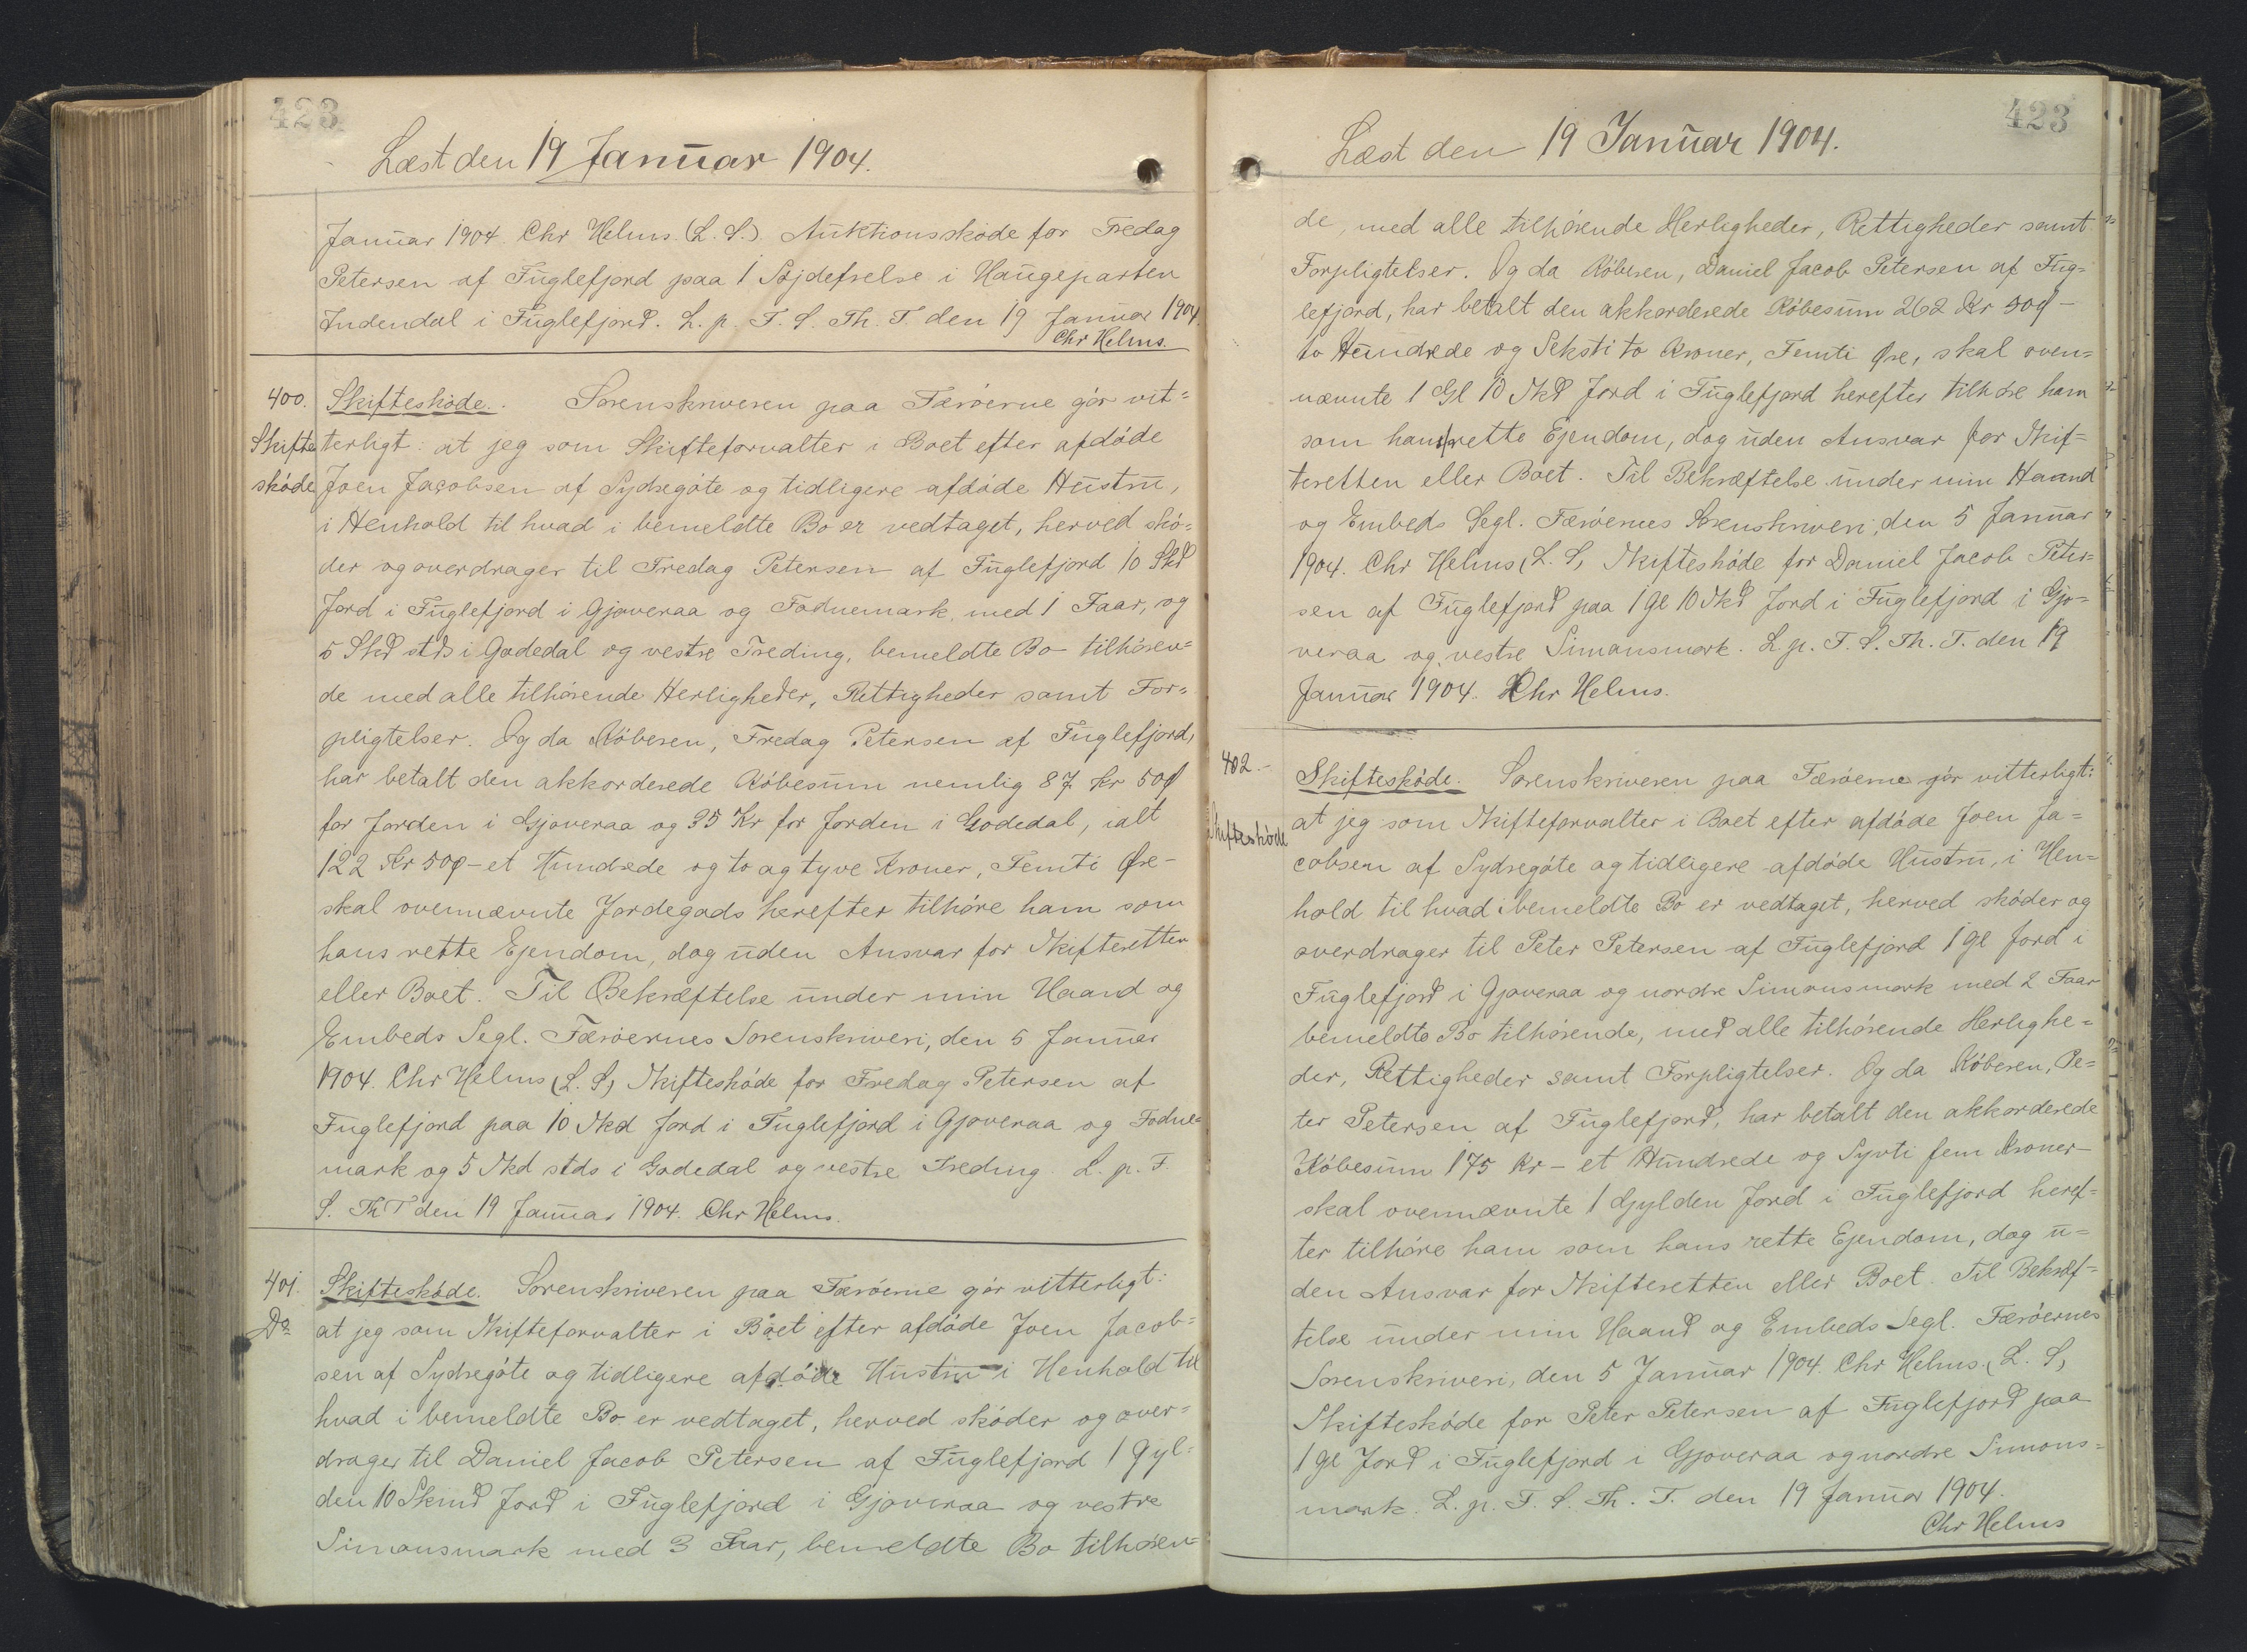 423
Læst den 19 Januar 1904.
Januar 1904. Chr Helms. (L. S.) Auktionsskøde for Fredag
Petersen af Fuglefjord paa 1 i Haugeparten
Indendal i Fuglefjord. L. p. F. S. Th. T den 19 Januar 1904.
Chr Helms.
400.
Skifte
skøde
Skifteskøde. Sorenskriveren paa Færøerne gør vit=
terligt: at jeg som Skifteforvalter i Boet efter afdøde
Joen Jacobsen af Sydregøte og tidligere afdøde Hustru,
i Henhold til hvad i bemeldte Bo er vedtaget, herved skø=
der og overdrager til Fredag Petersen af Fuglefjord 10 Skd
Jord i Fuglefjord i Gjoveraa og Fodnemark, med 1 Faar, og
5 Skd stds i Godedal og vestre Treding, bemeldte Bo tilhøren=
de med alle tilhørende Herligheder, Rettigheder samt For=
pligtelser. Og da Køberen, Fredag Petersen af Fuglefjord,
har betalt den akkorderede Købesum nemlig 87 Kr 50ø
for Jorden i Gjoveraa og 35 Kr for Jorden i Godedal, ialt
122 Kr 50ø - et Hundrede og to og tyve Kroner, Femti Øre -
skal ovennævnte Jordegods herefter tilhøre ham som
hans rette Ejendom, dog uden Ansvar for Skifteretten
eller Boet. Til Bekræftelse under min Haand og
Embeds Segl. Færøernes Sorenskriveri, den 5 Januar
1904. Chr Helms (L. S) Skifteskøde for Fredag Petersen af
Fuglefjord paa 10 Skd Jord i Fuglefjord i Gjoveraa og Fodne=
mark og 5 Skd stds i Godedal og vestre Treding. L. p. F.
S. Th T den 19 Januar 1904. Chr Helms.
401.
Do
Skifteskøde. Sorenskriveren paa Færøerne gør vitterligt:
at jeg som Skifteforvalter i Boet efter afdøde Joen Jacob=
sen af Sydregøte og tidligere afdøde Hustru i Henhold til
hvad i bemeldte Bo er vedtaget, herved skøder og over=
drager til Daniel Jacob Petersen af Fuglefjord 1 Gyl=
den 10 Skind Jord i Fuglefjord i Gjoveraa og vestre
Simonsmark med 3 Faar, bemeldte Bo tilhøren=
423
Læst den 19 Januar 1904.
de, med alle tilhørende Herligheder, Rettigheder samt
Forpligtelser. Og da Køberen, Daniel Jacob Petersen af Fug=
lefjord, har betalt den akkorderede Købesum 262 Kr 50ø -
to Hundrede og Seksti to Kroner, Femti Øre, skal oven=
nævnte 1 Gl 10 Skd Jord i Fuglefjord herefter tilhøre ham
som hans rette Ejendom, dog uden Ansvar for Skif=
teretten eller Boet. Til Bekræftelse under min Haand
og Embeds Segl. Færøernes Sorenskriveri, den 5 Januar
1904. Chr Helms (L. S) Skifteskøde for Daniel Jacob Peter=
sen af Fuglefjord paa 1 Gl 10 Skd Jord i Fuglefjord i Gjo=
veraa og vestre Simonsmark. L. p. F. S. Th. T. den 19
Januar 1904. Chr Helms.
402.-
Skifteskøde
Skifteskøde. Sorenskriveren paa Færøerne gør vitterligt:
at jeg som Skifteforvalter i Boet efter afdøde Joen Ja=
cobsen af Sydregøte og tidligere afdøde Hustru, i Hen=
hold til hvad i bemeldte Bo er vedtaget, herved skøder og
overdrager til Peter Petersen af Fuglefjord 1 Gl Jord i
Fuglefjord i Gjoveraa og nordre Simonsmark med 2 Faar
bemeldte Bo tilhørende, med alle tilhørende Herlighe=
der, Rettigheder samt Forpligtelser. Og da Køberen, Pe=
ter Petersen af Fuglefjord, har betalt den akkorderede
Købesum 175 Kr - et Hundrede og Syvti fem Kroner -
skal ovennævnte 1 Gylden Jord i Fuglefjord heref=
ter tilhøre ham som hans rette Ejendom, dog u=
den Ansvar for Skifteretten eller Boet. Til Bekræf=
telse under min Haand og Embeds Segl. Færøernes
Sorenskriveri, den 5 Januar 1904. Chr Helms. (L. S)
Skifteskøde for Peter Petersen af Fuglefjord paa
1 Gl Jord i Fuglefjord i Gjoveraa og nordre Simons=
mark. L. p. F. S. Th. T. den 19 Januar 1904.
Chr Helms